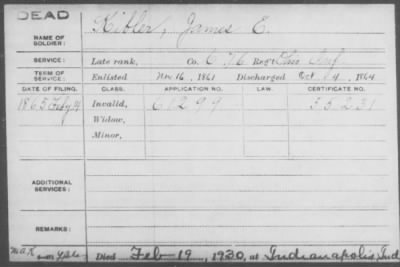 DEAD
NAME OF SOLDIER: Kibler, James E.
SERVICE: Late rank, Co. C 76 Reg't Ohio Inf
TERM OF SERVICE: Enlisted Nov 16, 1861 Discharged Oct 14, 1864
DATE OF FILING. CLASS. APPLICATION NO. LAW. CERTIFICATE NO.
1865 Feby 14 Invalid, 61299 55231
Widow,
Minor,
ADDITIONAL SERVICES:
REMARKS:
Died Feb 19, 1930, at Indianapolis, Ind